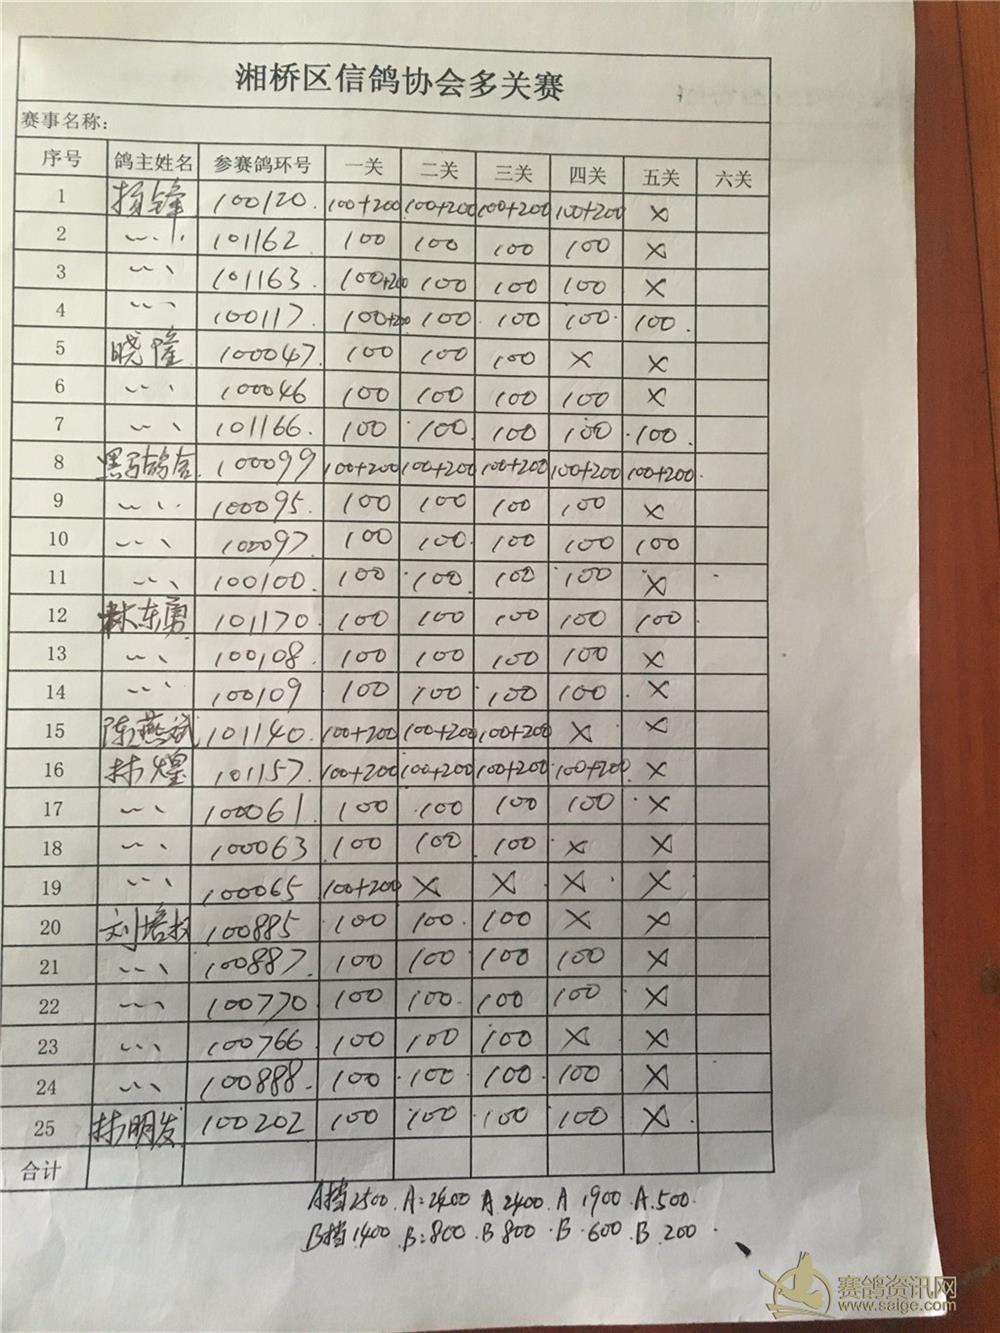 湘桥区信鸽协会多关赛
赛事名称:
序号 鸽主姓名 参赛鸽环号 一关 二关 三关 四关 五关 六关
1 锋 100120. 100+200 100+200 100+200 100+200 ×
2 〃 101162 100 100 100 100 ×
3 〃 101163 100+200 100 100 100 ×
4 〃 100117. 100+200 100 100 100 100.
5 晓隆 100047 100 100 100 × ×
6 〃 100046 100 100 100 100 ×
7 〃 101166 100 100 100 100 100.
8 黑马鸽舍 100099 100+200 100+200 100+200 100+200 100+200
9 〃 100095 100 100 100 100 ×
10 〃 100097 100 100 100 100 100
11 〃 100100 100 100 100 100 ×
12 林东勇 101170 100 100 100 100 100
13 〃 100108 100 100 100 100 ×
14 〃 100109 100 100 100 100 ×
15 陈燕斌 101140 100+200 100+200 100+200 × ×
16 林煌 101157 100+200 100+200 100+200 100+200 ×
17 〃 100061 100 100 100 100 ×
18 〃 100063 100 100 100 × ×
19 〃 100065 100+200 × × × ×
20 刘培 100885 100 100 100 × ×
21 〃 100887 100 100 100 100 ×
22 〃 100770 100 100 100 100 ×
23 〃 100766 100 100 100 × ×
24 〃 100888 100 100 100 100 ×
25 林明发 100202 100 100 100 100 ×
合计
A挡2500. A:2400 A 2400. A 1900. A.500.
B挡1400. B:800. B 800. B.600. B.200.
赛鸽资讯网
www.saige.com